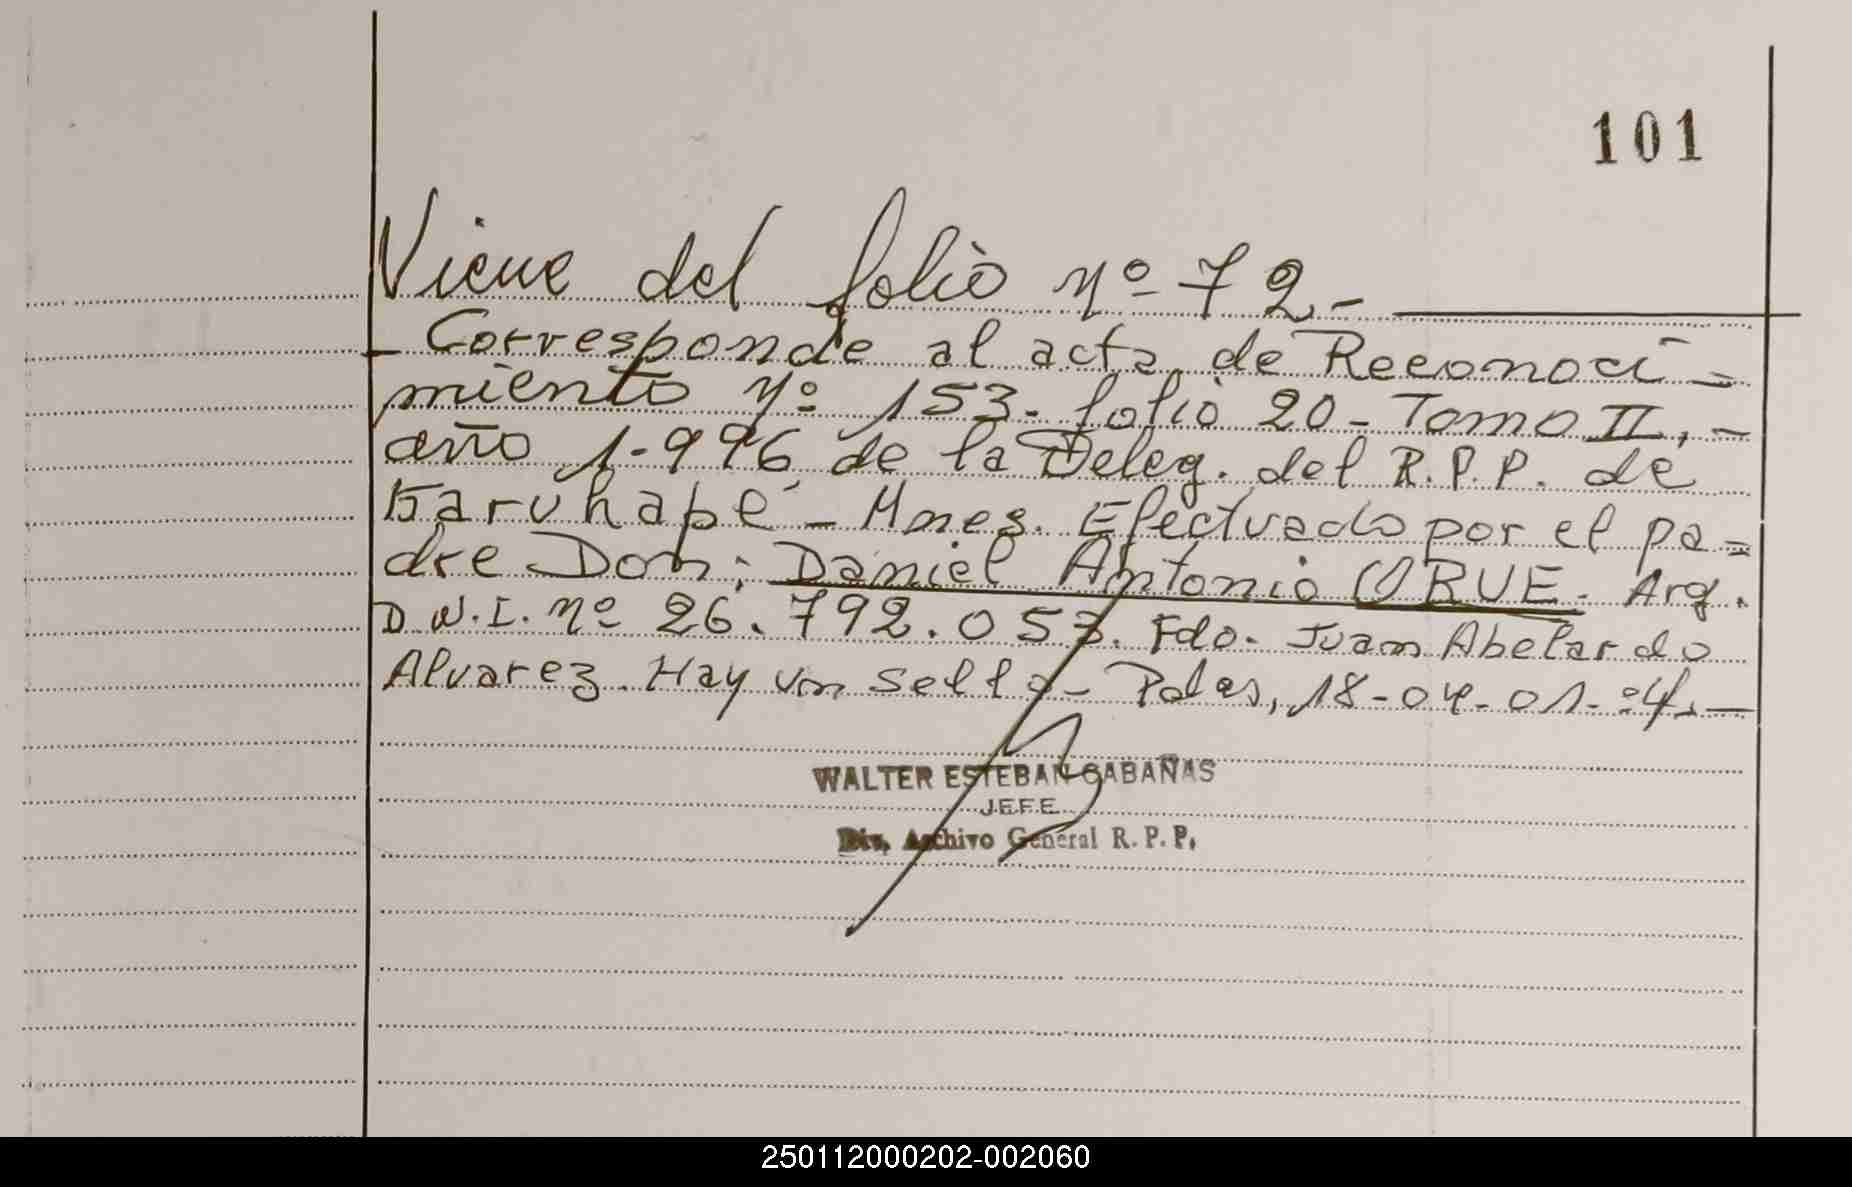 101
Viene del folio nº 72.-
- Corresponde al acta de Reconoci=
miento nº 153. folio 20 - Tomo II.-
año 1.996 de la Deleg. del R.P.P. de
Garuhapé - Mnes. Efectuado por el pa=
dre Don: Daniel Antonio ORUE. Arg.
D.N.I. nº 26.792.053. Fdo. Juan Abelardo
Alvarez. Hay un sello - Pdas, 18-04-01.-
WALTER ESTEBAN CABAÑAS
JEFE
Div. Archivo General R. P. P.
250112000202-002060